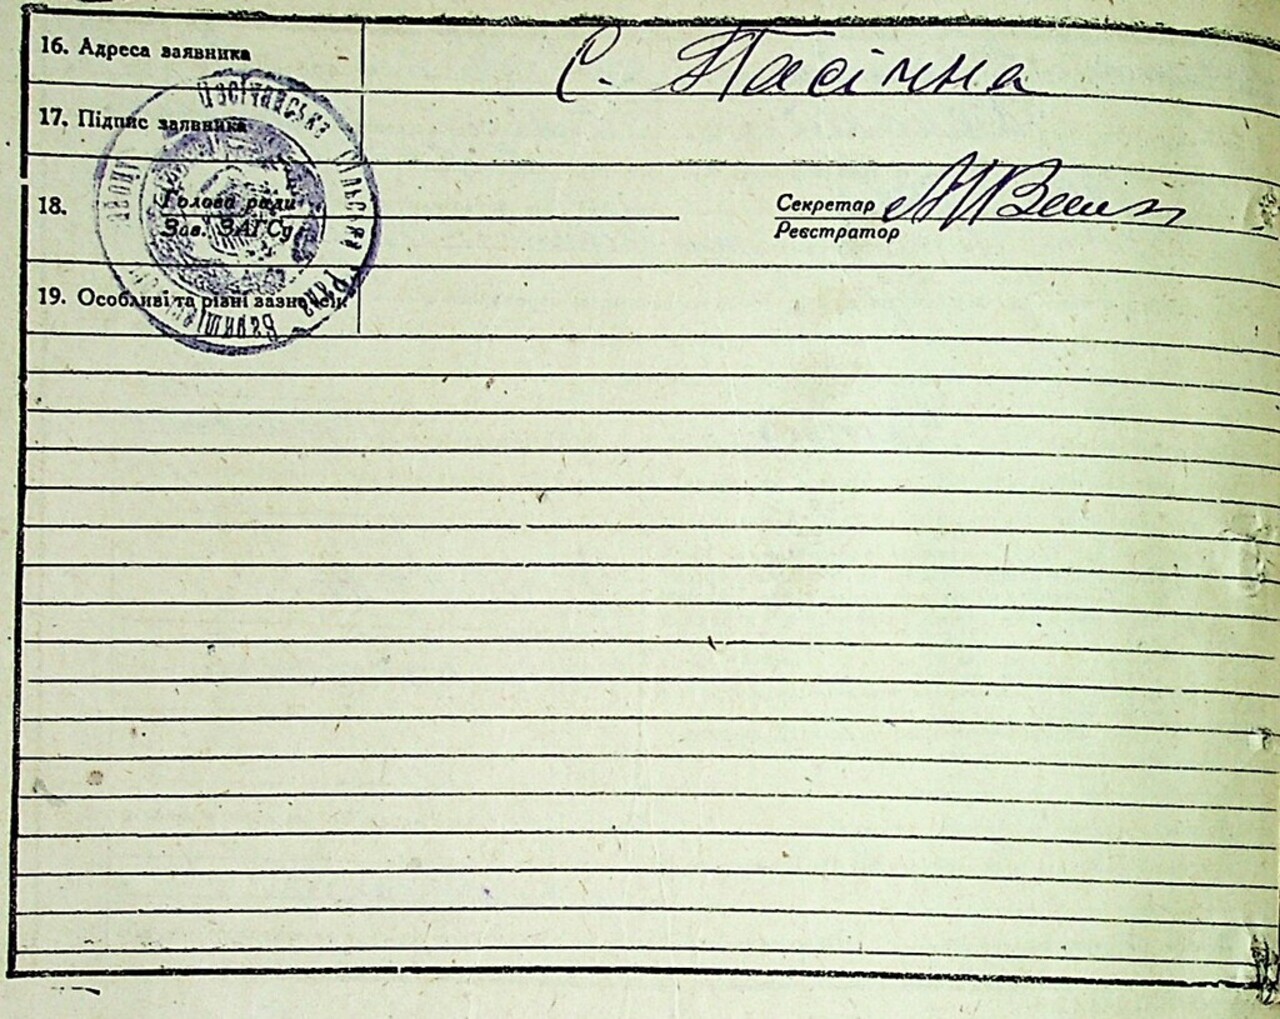 16. Адреса заявника
с. Пасічна
17. Підпис заявника
18.
Голова ради
Зав. ЗАГСу
Секретар
Реєстратор
19. Особливі та різні зазначки
сільська Рада